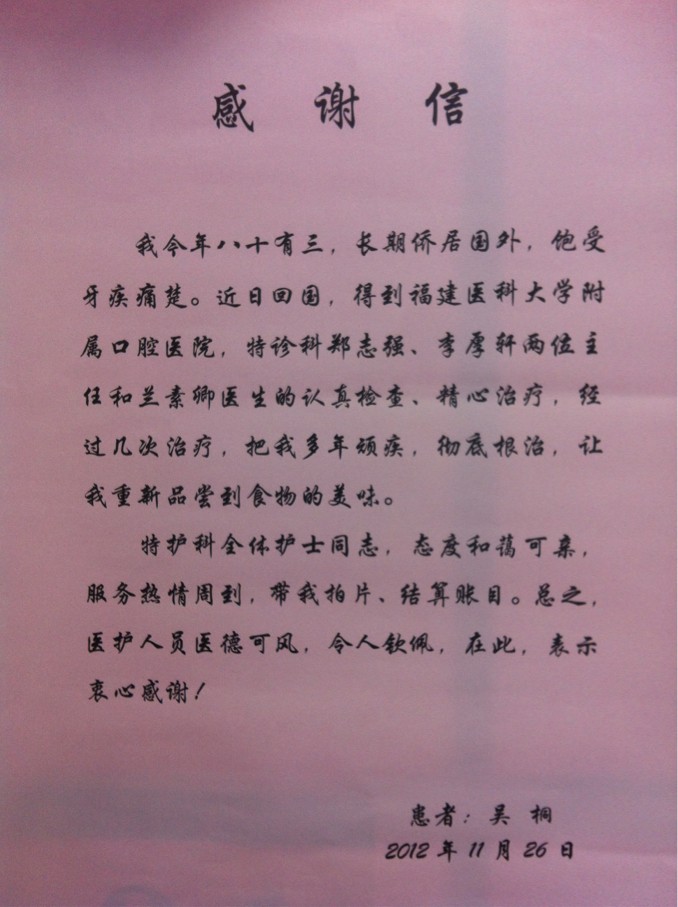 感谢信
我今年八十有三，长期侨居国外，饱受
牙疾痛楚。近日回国，得到福建医科大学附
属口腔医院，特诊科郑志强、李厚轩两位主
任和兰素卿医生的认真检查、精心治疗，经
过几次治疗，把我多年顽疾，彻底根治，让
我重新品尝到食物的美味。
特护科全体护士同志，态度和蔼可亲，
服务热情周到，带我拍片、结算账目。总之，
医护人员医德可风，令人钦佩，在此，表示
衷心感谢！
患者：吴桐
2012年11月26日